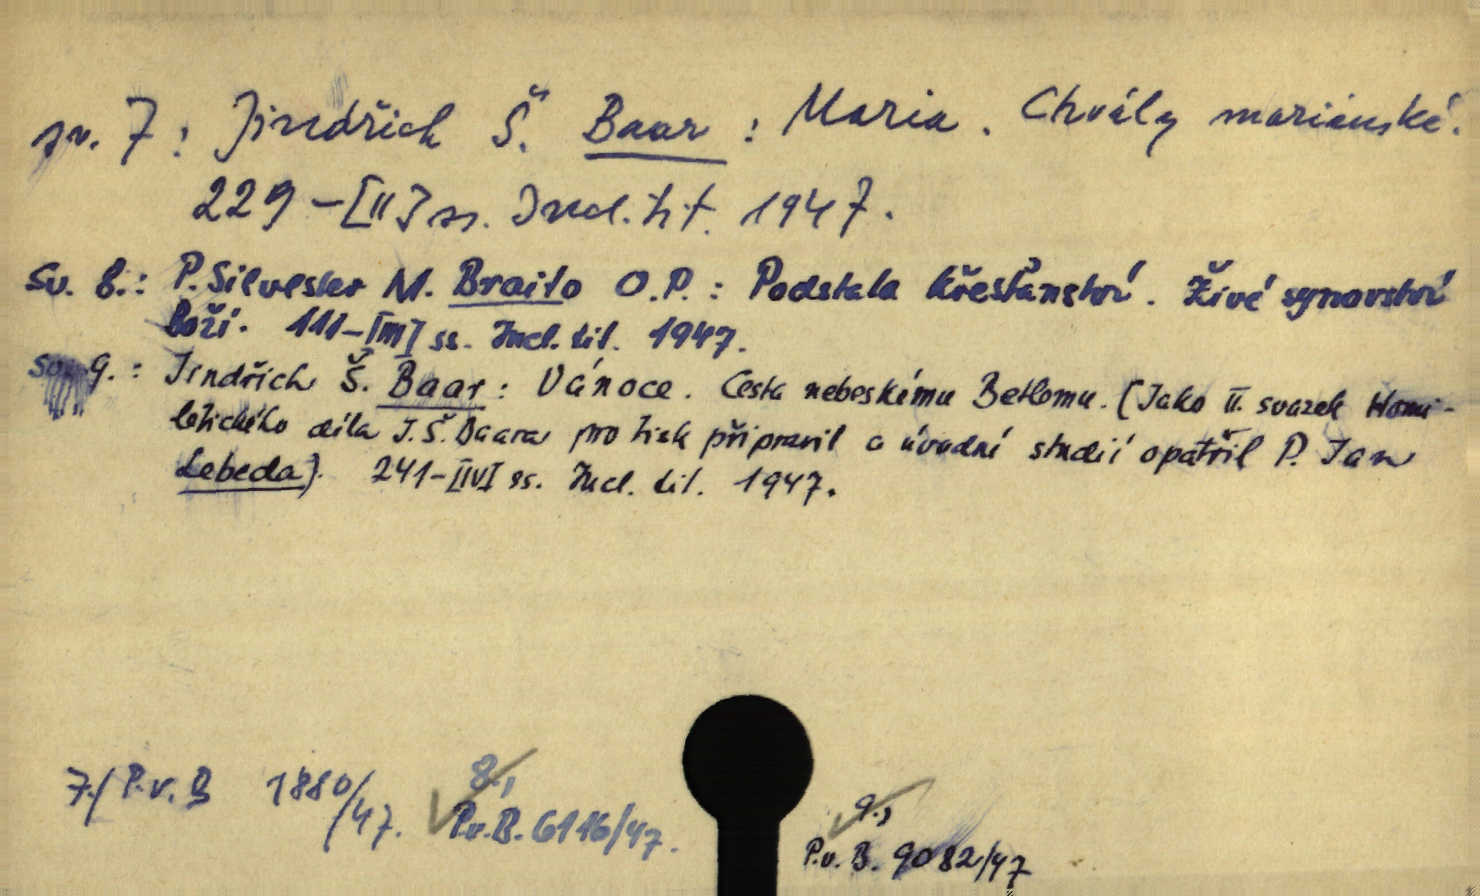 sv. 7: Jindřich Š. Baar: Maria. Chvály mariánské.
229-[II] ss. Incl. tit. 1947.
Sv. 8.: P. Silvester M. Braito O.P.: Podstata křesťanství. Živé synovství
Boží. 111-[III] ss. Incl. tit. 1947.
sv. 9.: Jindřich Š. Baar: Vánoce. Cesta nebeskému Betlomu. (Jako II. svazek Homi-
letického díla J. Š. Baara pro tisk připravil a úvodní studií opatřil P. Jan
Lebeda). 241-[IV] ss. Incl. tit. 1947.
7./ P.v.B 1880/47.
8.,
P.v.B. 6116/47.
9.,
P.v.B. 9082/47